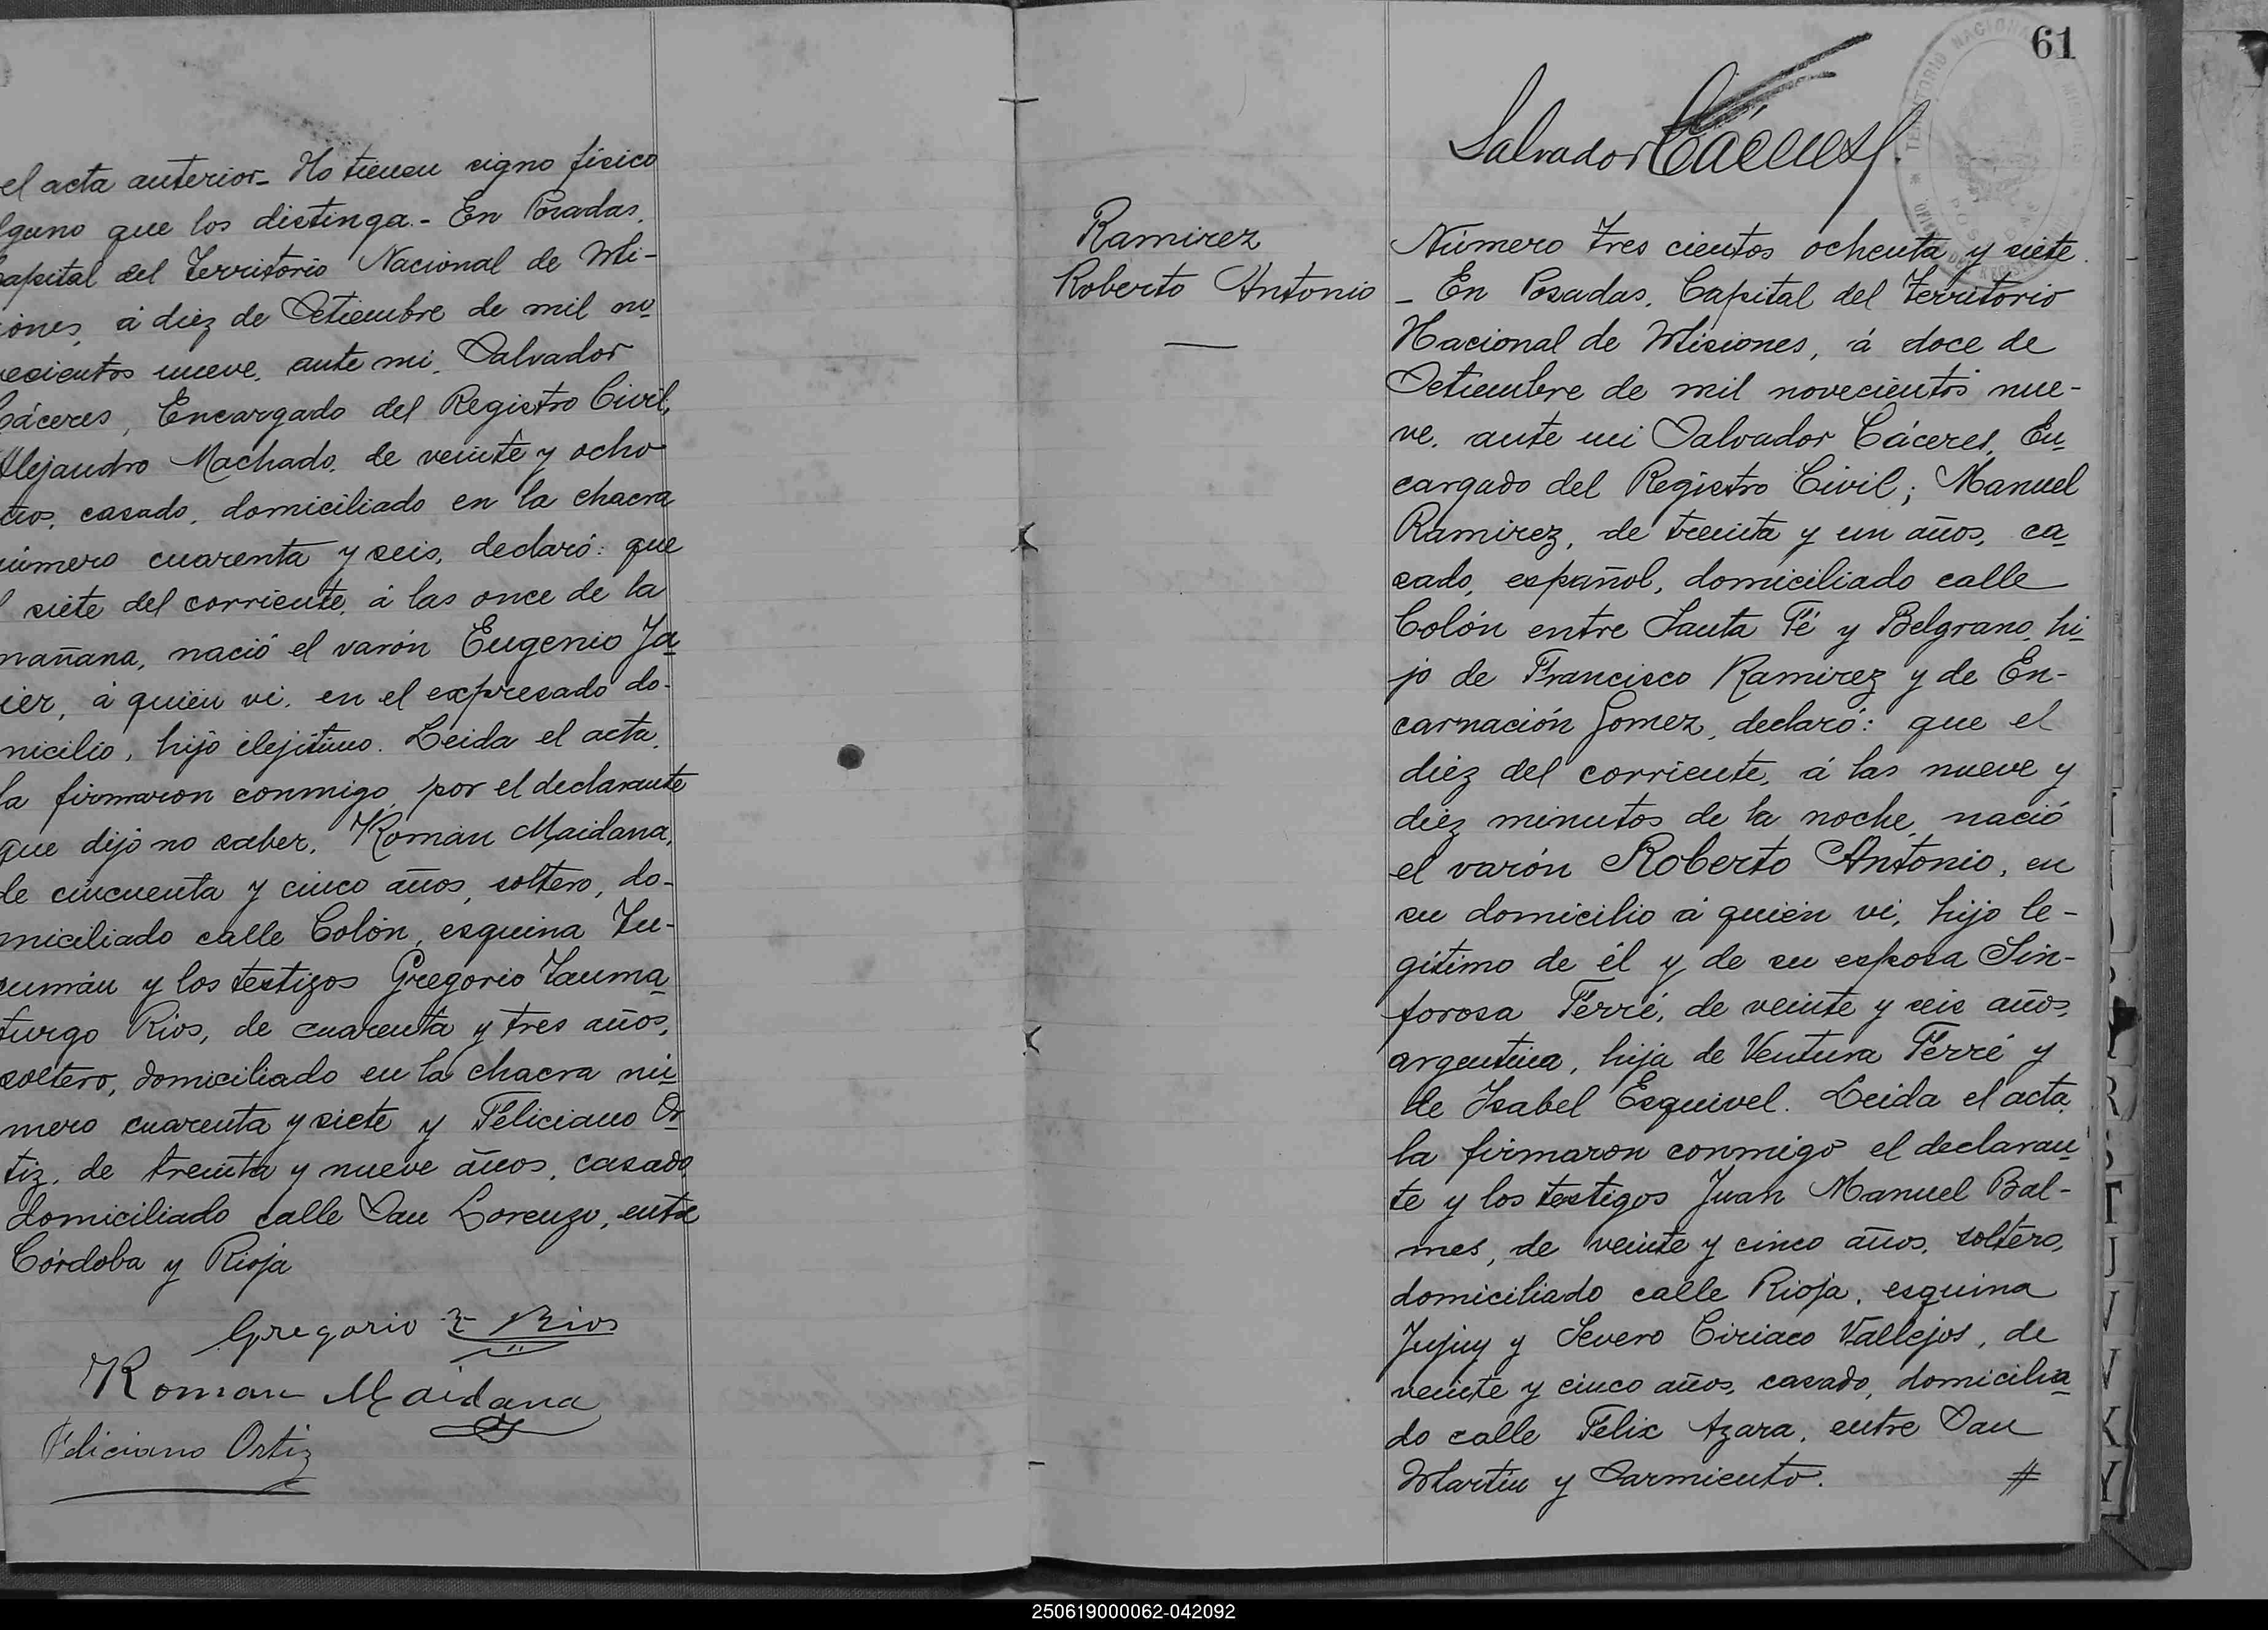 el acta anterior_ No tienen signo físico
lguno que los distinga.- En Posadas,
apital del Territorio Nacional de Mi-
iones, á diez de Setiembre de mil no
vecientos nueve, ante mi, Salvador
Cáceres, Encargado del Registro Civil,
Alejandro Machado, de veinte y ocho
años, casado, domiciliado en la chacra
número cuarenta y seis, declaró: que
l siete del corriente, á las once de la
mañana, nació el varón Eugenio Ja
ier, á quien vi, en el expresado do-
micilio, hijo ilejitimo. Leida el acta,
la firmaron conmigo, por el declarante
que dijo no saber, Román Maidana,
de cincuenta y cinco años, soltero, do-
miciliado calle Colón, esquina Tu-
cumán y los testigos Gregorio Tauma
turgo Rios, de cuarenta y tres años,
soltero, domiciliado en la chacra nú
mero cuarenta y siete y Feliciano Or
tiz, de treinta y nueve años, casado,
domiciliado calle San Lorenzo, entre
Córdoba y Rioja
Gregorio T Rios
Roman Maidana
Feliciano Ortiz
61
Salvador Cáceres
TERRITORIO NACIONAL MISIONES
POSADAS
Ramirez
Roberto Antonio
Número tres cientos ochenta y siete.
_ En Posadas, Capital del Territorio
Nacional de Misiones, á doce de
Setiembre de mil novecientos nue-
ve, ante mi Salvador Cáceres, En
cargado del Registro Civil; Manuel
Ramirez, de treinta y un años, ca
sado, español, domiciliado calle
Colón entre Santa Fé y Belgrano, hi
jo de Francisco Ramirez y de En-
carnación Gomez, declaró: que el
diez del corriente, á las nueve y
diez minutos de la noche, nació
el varón Roberto Antonio, en
su domicilio á quien vi, hijo le-
gitimo de él y de su esposa Sin-
forosa Ferré, de veinte y seis años,
argentina, hija de Ventura Ferré y
de Isabel Esquivel. Leida el acta,
la firmaron conmigo el declaran
te y los testigos Juan Manuel Bal-
mes, de veinte y cinco años, soltero,
domiciliado calle Rioja, esquina
Jujuy y Severo Ciriaco Vallejos, de
veinte y cinco años, casado, domicilia
do calle Felix Azara, entre San
Martin y Sarmiento. #
R
S
T
U
V
K
Y
250619000062-042092